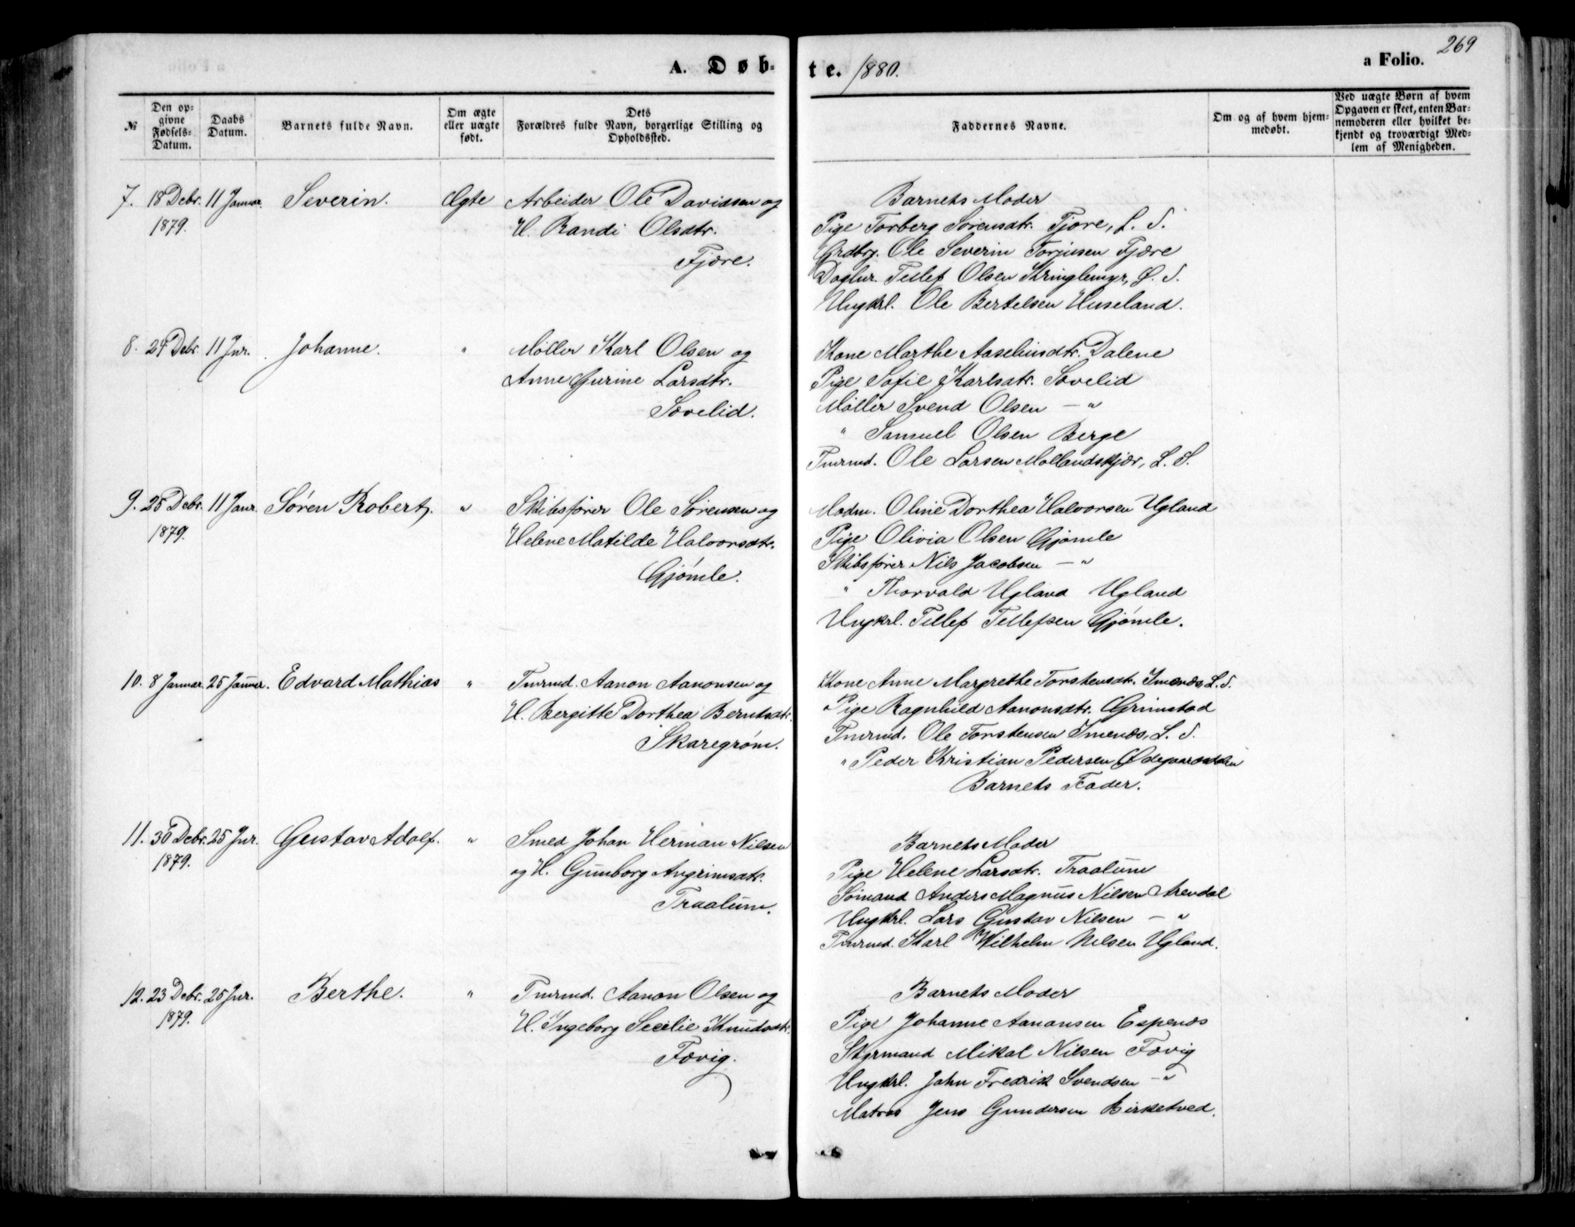 269
A. Døbte. 1880.
a Folio.
№
Den opgivne Fødsels-Datum.
Daabs Datum.
Barnets fulde Navn.
Om ægte eller uægte født.
Dets Forældres fulde Navn, borgerlige Stilling og Opholdssted.
Faddernes Navne.
Om og af hvem hjemmedøbt.
Ved uægte Børn af hvem Opgaven er skeet, enten Barnemoderen eller hvilket bekjendt og troværdigt Medlem af Menigheden.
7. 18 Debr. 1879. 11 Januar. Severin. Ægte
Arbeider Ole Davidsen og
H. Randi Olsdtr.
Fjære.
Barnets Moder
Pige Torberg Sørensdtr. Fjære, L. S.
Grdbrg. Ole Severin Torjusen Fjære
Daglnr. Tellef Olsen Kringlemyr, L. S.
Ungkrl. Ole Bertelsen Huseland.
8. 24 Debr. 11 Jnr. Johanne. "
Møller Karl Olsen og
Anne Gurine Larsdtr.
Sævelid.
Kone Marthe Aaselundtr. Dalene
Pige Sofie Karlsdtr. Sævelid
Møller Svend Olsen — "
" Samuel Olsen Berge
Tmrmd. Ole Larsen Mollandskjær, L. S.
9. 25 Debr. 1879. 11 Janr. Søren Robert. "
Skibsfører Ole Sørensen og
Helene Matilde Halvorsdtr.
Gjømle.
Madm. Oline Dorthea Halvorsen Ugland
Pige Olivia Olsen Gjømle
Skibsfører Nils Jacobsen — "
" Thorvald Ugland Ugland
Ungkrl. Tellef Tellefsen Gjømle.
10. 8 Januar. 25 Januar. Edvard Mathias "
Tmrmd. Aanon Aanonsen og
H. Bergitte Dorthea Berntsdtr.
Skaregrøm.
Kone Anne Margrethe Torstensdtr. Imenæs, L. S.
Pige Ragnhild Aanonsdtr. Grimstad
Tmrmd. Ole Torstensen Imenæs, L. S.
" Peder Kristian Pedersen
Barnets Fader.
11. 30 Debr. 1879. 25 Jnr. Gustav Adolf. "
Smed Johan Herman Nilsen
og H. Gunborg Angrimsdtr.
Traalum.
Barnets Moder
Pige Helene Larsdtr. Traalum
Sømand Anders Magnus Nilsen Arendal
Ungkrl. Lars Gustav Nilsen — "
Tmrmd. Karl Wilhelm Nilsen Ugland.
12. 23 Debr. 1879. 25 Jnr. Berthe. "
Tmrmd. Aanon Olsen og
H. Ingeborg Secilie Knudsdtr.
Fævig.
Barnets Moder
Pige Johanne Aanonsen Espenæs
Styrmand Mikal Nilsen Fævig
Ungkrl. John Fredrik Svendsen — "
Matros Jens Gundersen Birketved.